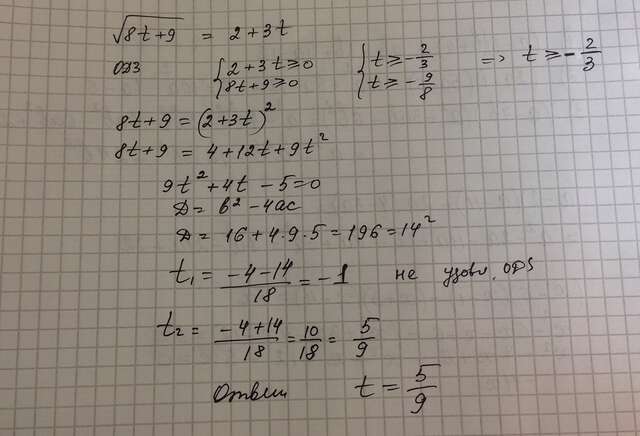 √(8t+9) = 2+3t
ОДЗ { 2+3t≥0 { t≥-2/3 => t≥-2/3
8t+9≥0 t≥-9/8
8t+9 = (2+3t)²
8t+9 = 4+12t+9t²
9t²+4t-5=0
D= b²-4ac
D= 16+4·9·5=196=14²
t₁ = (-4-14)/18 = -1 не удовл. ОДЗ
t₂ = (-4+14)/18 = 10/18 = 5/9
Ответ t = 5/9